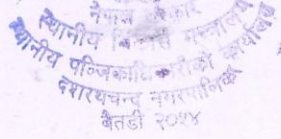 नेपाल सरकार
स्थानीय विकास मन्त्रालय
स्थानीय पञ्जिकाधिकारीको कार्यालय
दशरथचन्द नगरपालिका
बैतडी २०५४